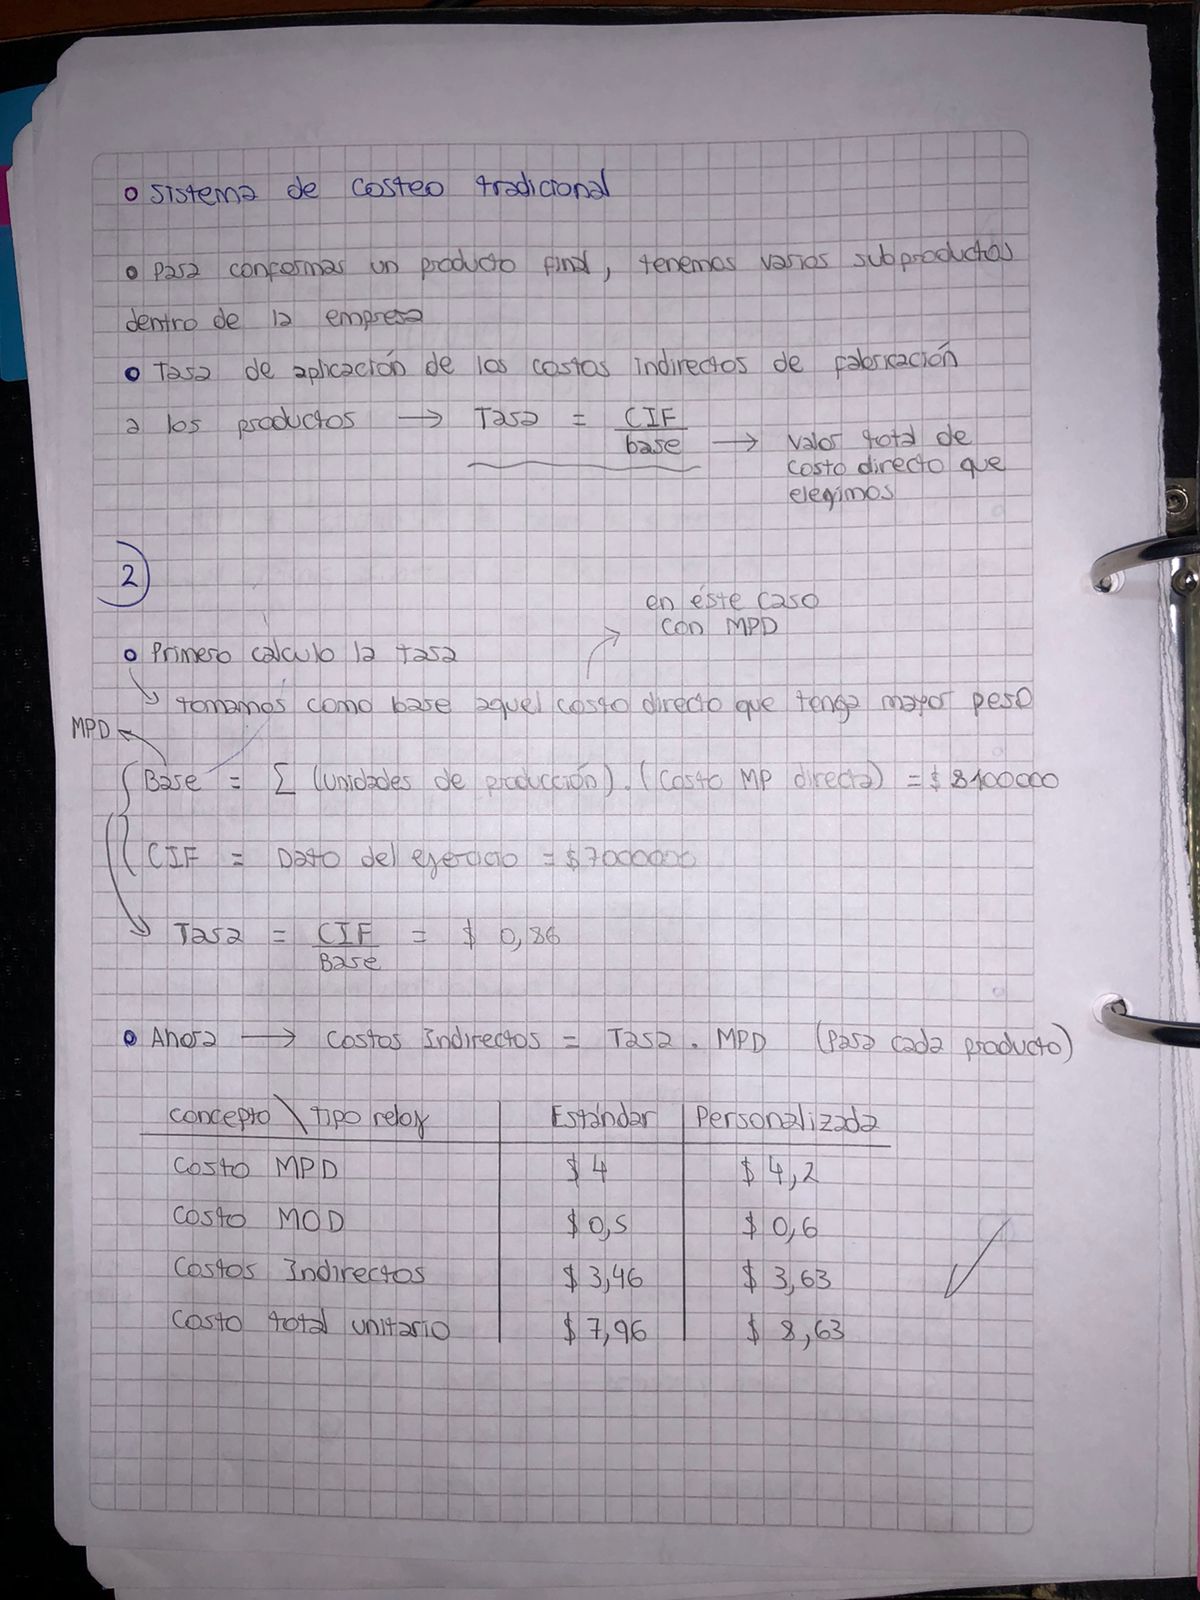 o Sistema de costeo tradicional
o Para conformar un producto final, tenemos varios subproductos
dentro de la empresa
o Tasa de aplicación de los costos indirectos de fabricación
a los productos → Tasa = CIF / base → valor total de
costo directo que
elegimos
2)
en este caso
con MPD
o Primero calculo la tasa
↳ tomamos como base aquel costo directo que tenga mayor peso
MPD
Base = Σ (unidades de producción) . (costo MP directa) = $ 8100000
CIF = Dato del ejercicio = $ 7000000
↳ Tasa = CIF / Base = $ 0,86
o Ahora → Costos Indirectos = Tasa . MPD (para cada producto)
concepto \ tipo reloj Estándar Personalizada
Costo MPD $ 4 $ 4,2
Costo MOD $ 0,5 $ 0,6
Costos Indirectos $ 3,46 $ 3,63
Costo total unitario $ 7,96 $ 8,63